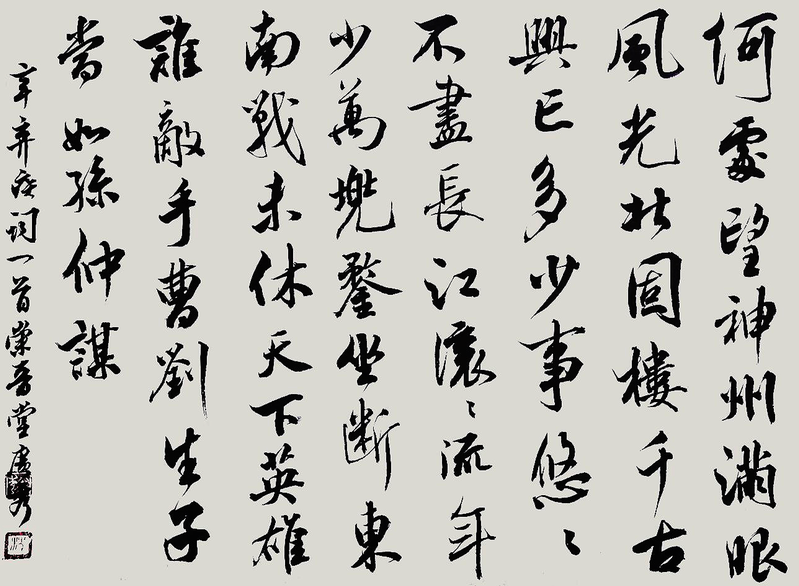 何處望神州滿眼
風光北固樓千古
興亡多少事悠〻
不盡長江滾〻流年
少萬兜鍪坐斷東
南戰未休天下英雄
誰敵手曹劉生子
當如孫仲謀
辛弃疾词一首